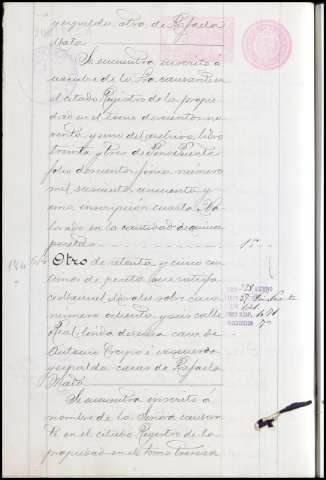 y espalda otra de Rafaela
Mató.
Se encuentra inscrito á
nombre de la Sra. causante en
el citado Registro de la propie-
dad en el tomo doscientos no-
venta y uno del archivo, libro
treinta y tres de
folio doscientos finca número
mil seiscientos cincuenta y
una inscripción cuarta. Va-
lorado en la cantidad de quince
pesetas 15"
Otro de setenta y cinco cén-
timos de peseta que satisface
Manuel Morales sobre casa
número ochenta y seis calle
Real, linda derecha casa de
Antonio é izquierda
y espalda casas de Rafaela
Mató.
Se encuentra inscrito á
nombre de la Señora causan-
te en el citado Registro de la
propiedad en el tomo